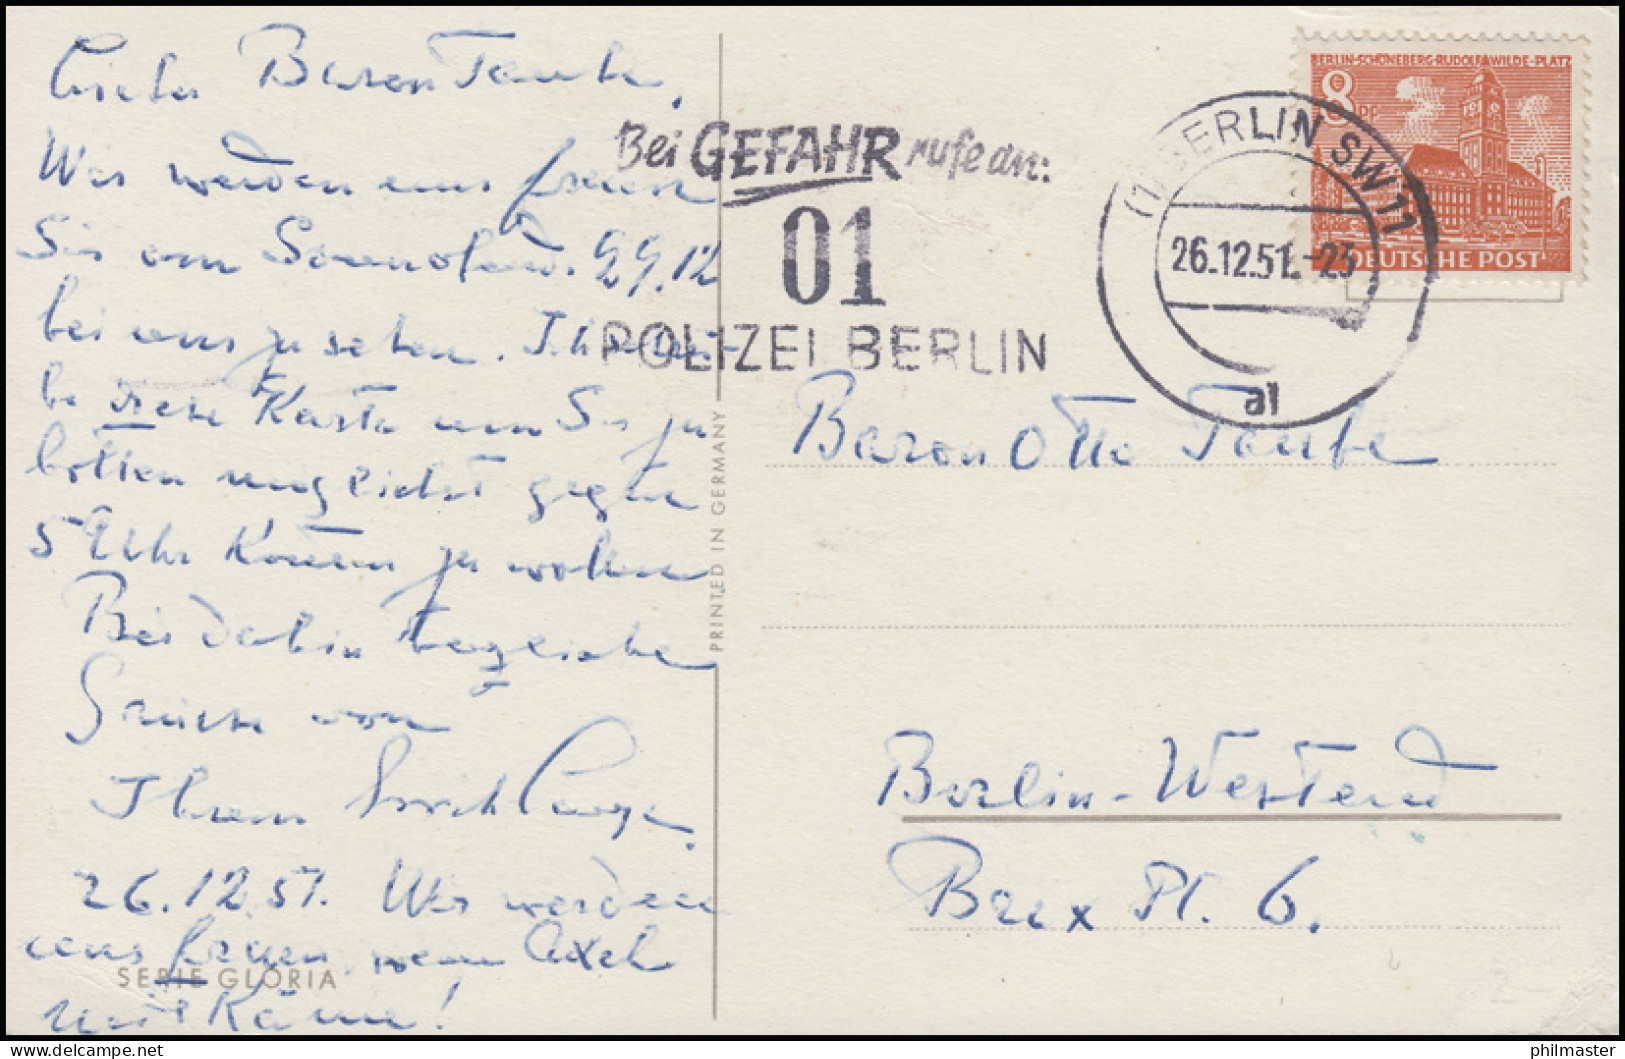 Lieber Baron Taube,
Wir werden uns freuen
Sie am Sonnabend. 29.12
bei uns zu sehen. Ich
be diese Karte um Sie zu
bitten möglichst gegen
5 Uhr kommen zu wollen
Bei dahin herzliche
Grüsse von
Ihrem
26.12.51. Wir werden
uns freuen, wenn Axel
mit käme!
SERIE GLORIA
PRINTED IN GERMANY
Bei GEFAHR rufe an:
01
POLIZEI BERLIN
(1) BERLIN SW 11
26.12.51.-23
al
BERLIN-SCHÖNEBERG·RUDOLF-WILDE-PLATZ
8 PF
DEUTSCHE POST
Baron Otto Taube
Berlin-Westend
Brix Pl. 6.
philmaster